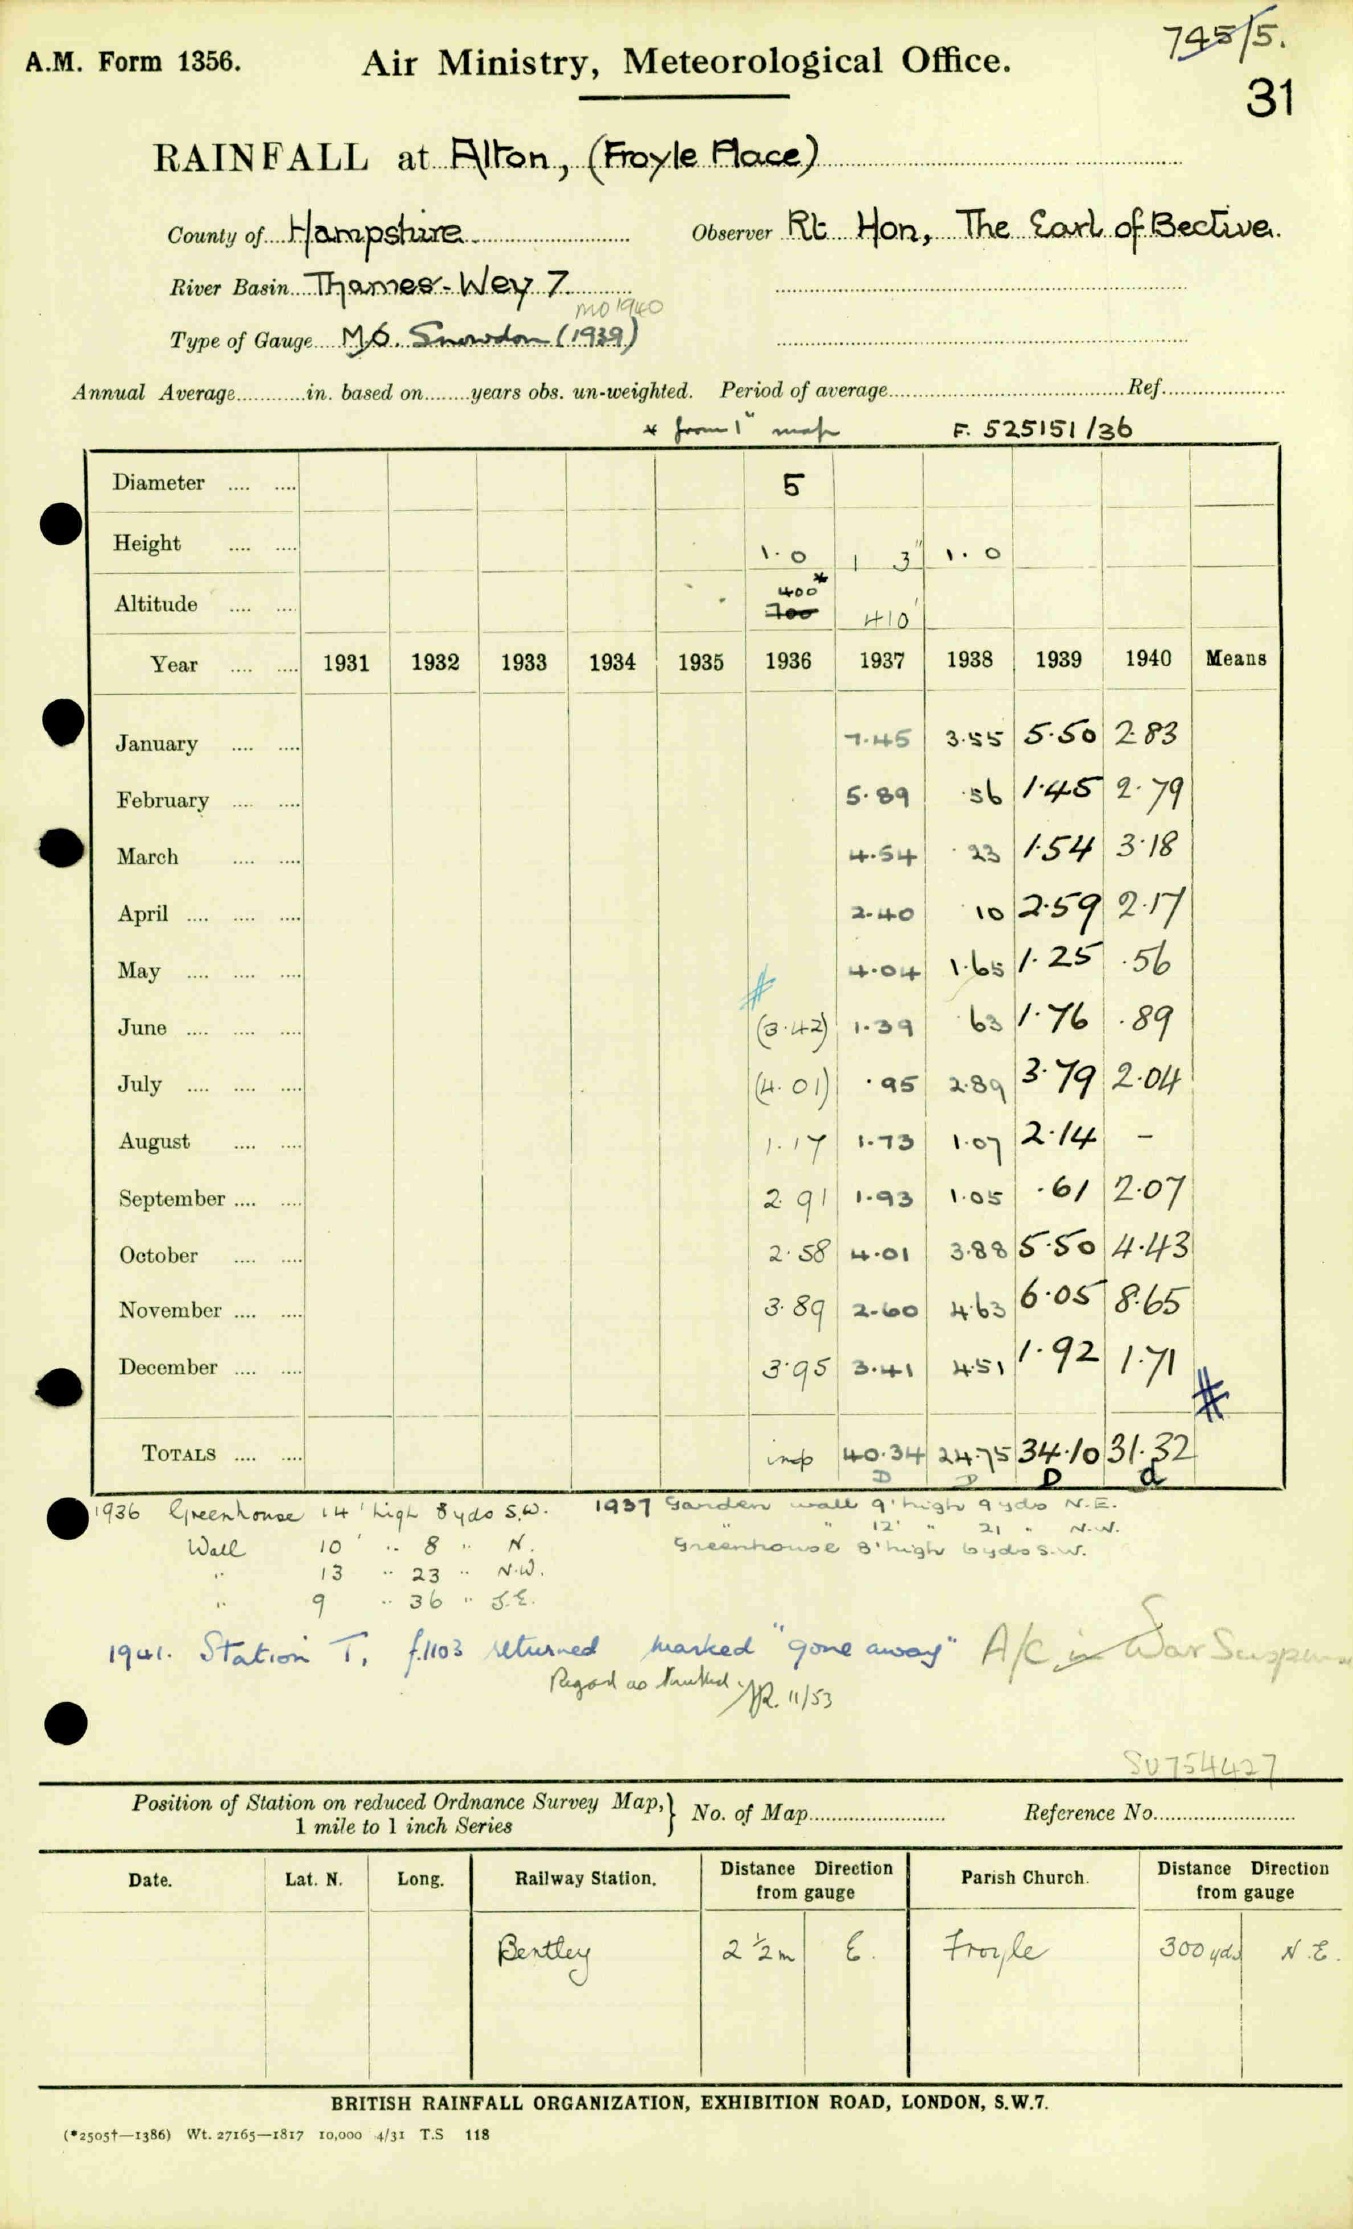 745/5.
A.M. Form 1356. Air Ministry, Meteorological Office.
31
RAINFALL at Alton, (Froyle Place)
County of Hampshire Observer Rt Hon, The Earl of Bective.
River Basin Thames-Wey 7.
MO 1940
Type of Gauge M.O. Snowdon (1939)
Annual Average in. based on years obs. un-weighted. Period of average Ref.
* from 1" map F. 525151/36
Diameter 5
Height 1.0 1 3" 1.0
400*
Altitude 700 410'
Year 1931 1932 1933 1934 1935 1936 1937 1938 1939 1940 Means
January 7.45 3.55 5.50 2.83
February 5.89 .56 1.45 2.79
March 4.54 .23 1.54 3.18
April 2.40 10 2.59 2.17
May 4.04 1.65 1.25 .56
#
June (3.42) 1.39 63 1.76 .89
July (4.01) .95 2.89 3.79 2.04
August 1.17 1.73 1.07 2.14 -
September 2.91 1.93 1.05 .61 2.07
October 2.58 4.01 3.88 5.50 4.43
November 3.89 2.60 4.63 6.05 8.65
December 3.95 3.41 4.51 1.92 1.71
#
TOTALS inp 40.34 24.75 34.10 31.32
D D D d
1936 Greenhouse 14' high 8 yds S.W. 1937 Garden wall 9' high 9 yds N.E.
" " 12' " 21 " N.W.
Wall 10' " 8 " N. Greenhouse 8' high 6 yds S.W.
" 13 " 23 " N.W.
" 9 " 36 " S.E.
1941. Station T. f.1103 returned marked "gone away" A/C in War Suspense
Regard as 11/53
SU754427
Position of Station on reduced Ordnance Survey Map, } No. of Map Reference No.
1 mile to 1 inch Series
Date. Lat. N. Long. Railway Station. Distance Direction from gauge Parish Church. Distance Direction from gauge
Bentley 2 1/2 m E. Froyle 300 yds N.E.
BRITISH RAINFALL ORGANIZATION, EXHIBITION ROAD, LONDON, S.W.7.
(*2505†—1386) Wt. 27165—1817 10,000 4/31 T.S 118